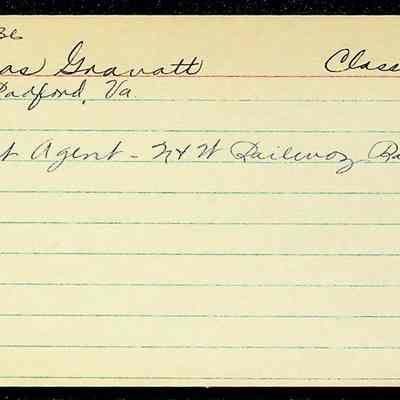 36
as Gravatt Class
Radford, Va.
t Agent - N & W Railway Ra